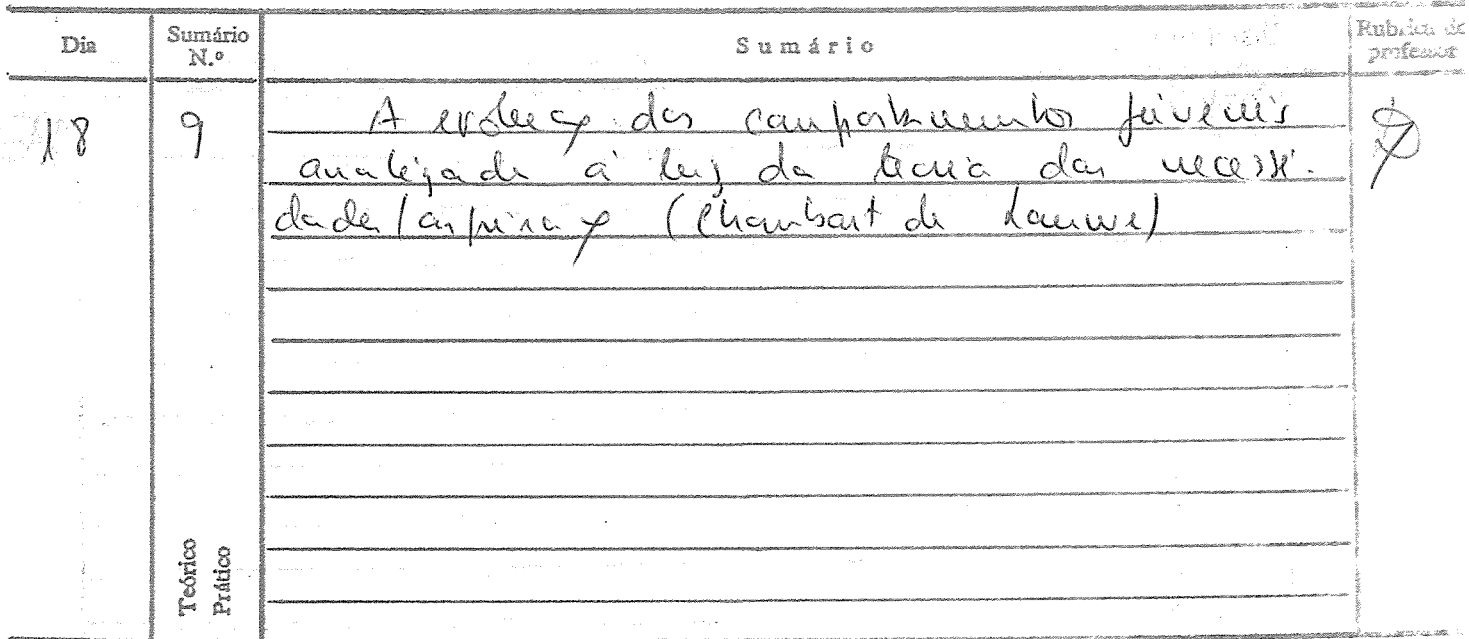 Dia Sumário N.º Sumário Rubrica do professor
18 9 A evolução dos comportamentos juvenis
analizada à luz da teoria das necessi-
dades/aspiração (Chombart de Lauwe)
Teórico
Prático